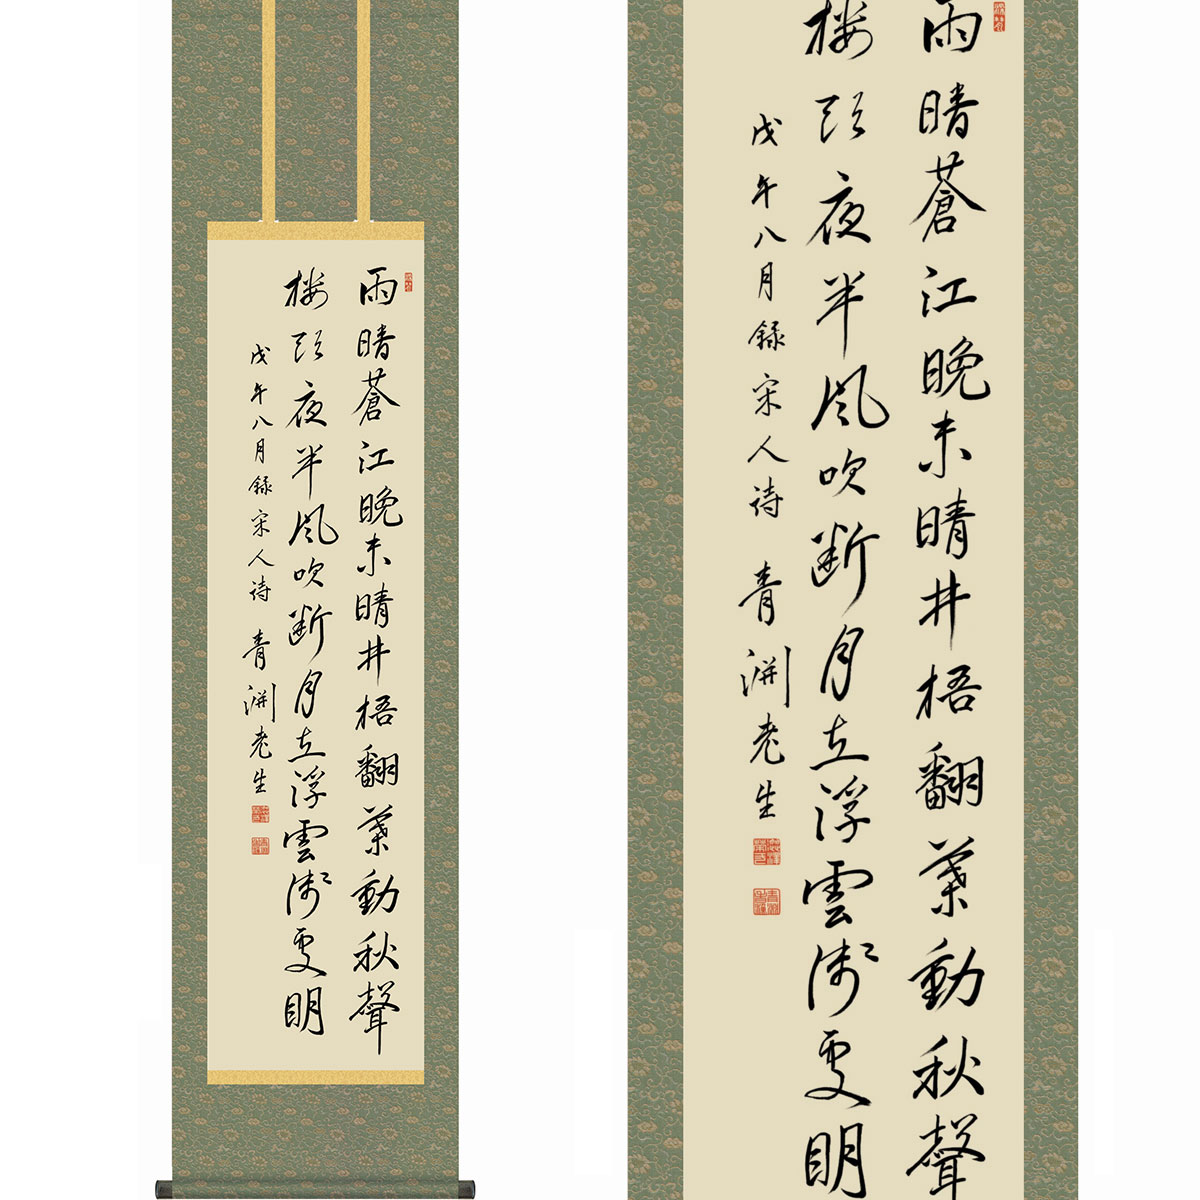 雨暗蒼江晚未晴井梧翻葉動秋聲
楼頭夜半風吹断月在浮雲浅處明
戊午八月録宋人詩 青淵老生
雨暗蒼江晚未晴井梧翻葉動秋聲
楼頭夜半風吹断月在浮雲浅處明
戊午八月録宋人詩 青淵老生